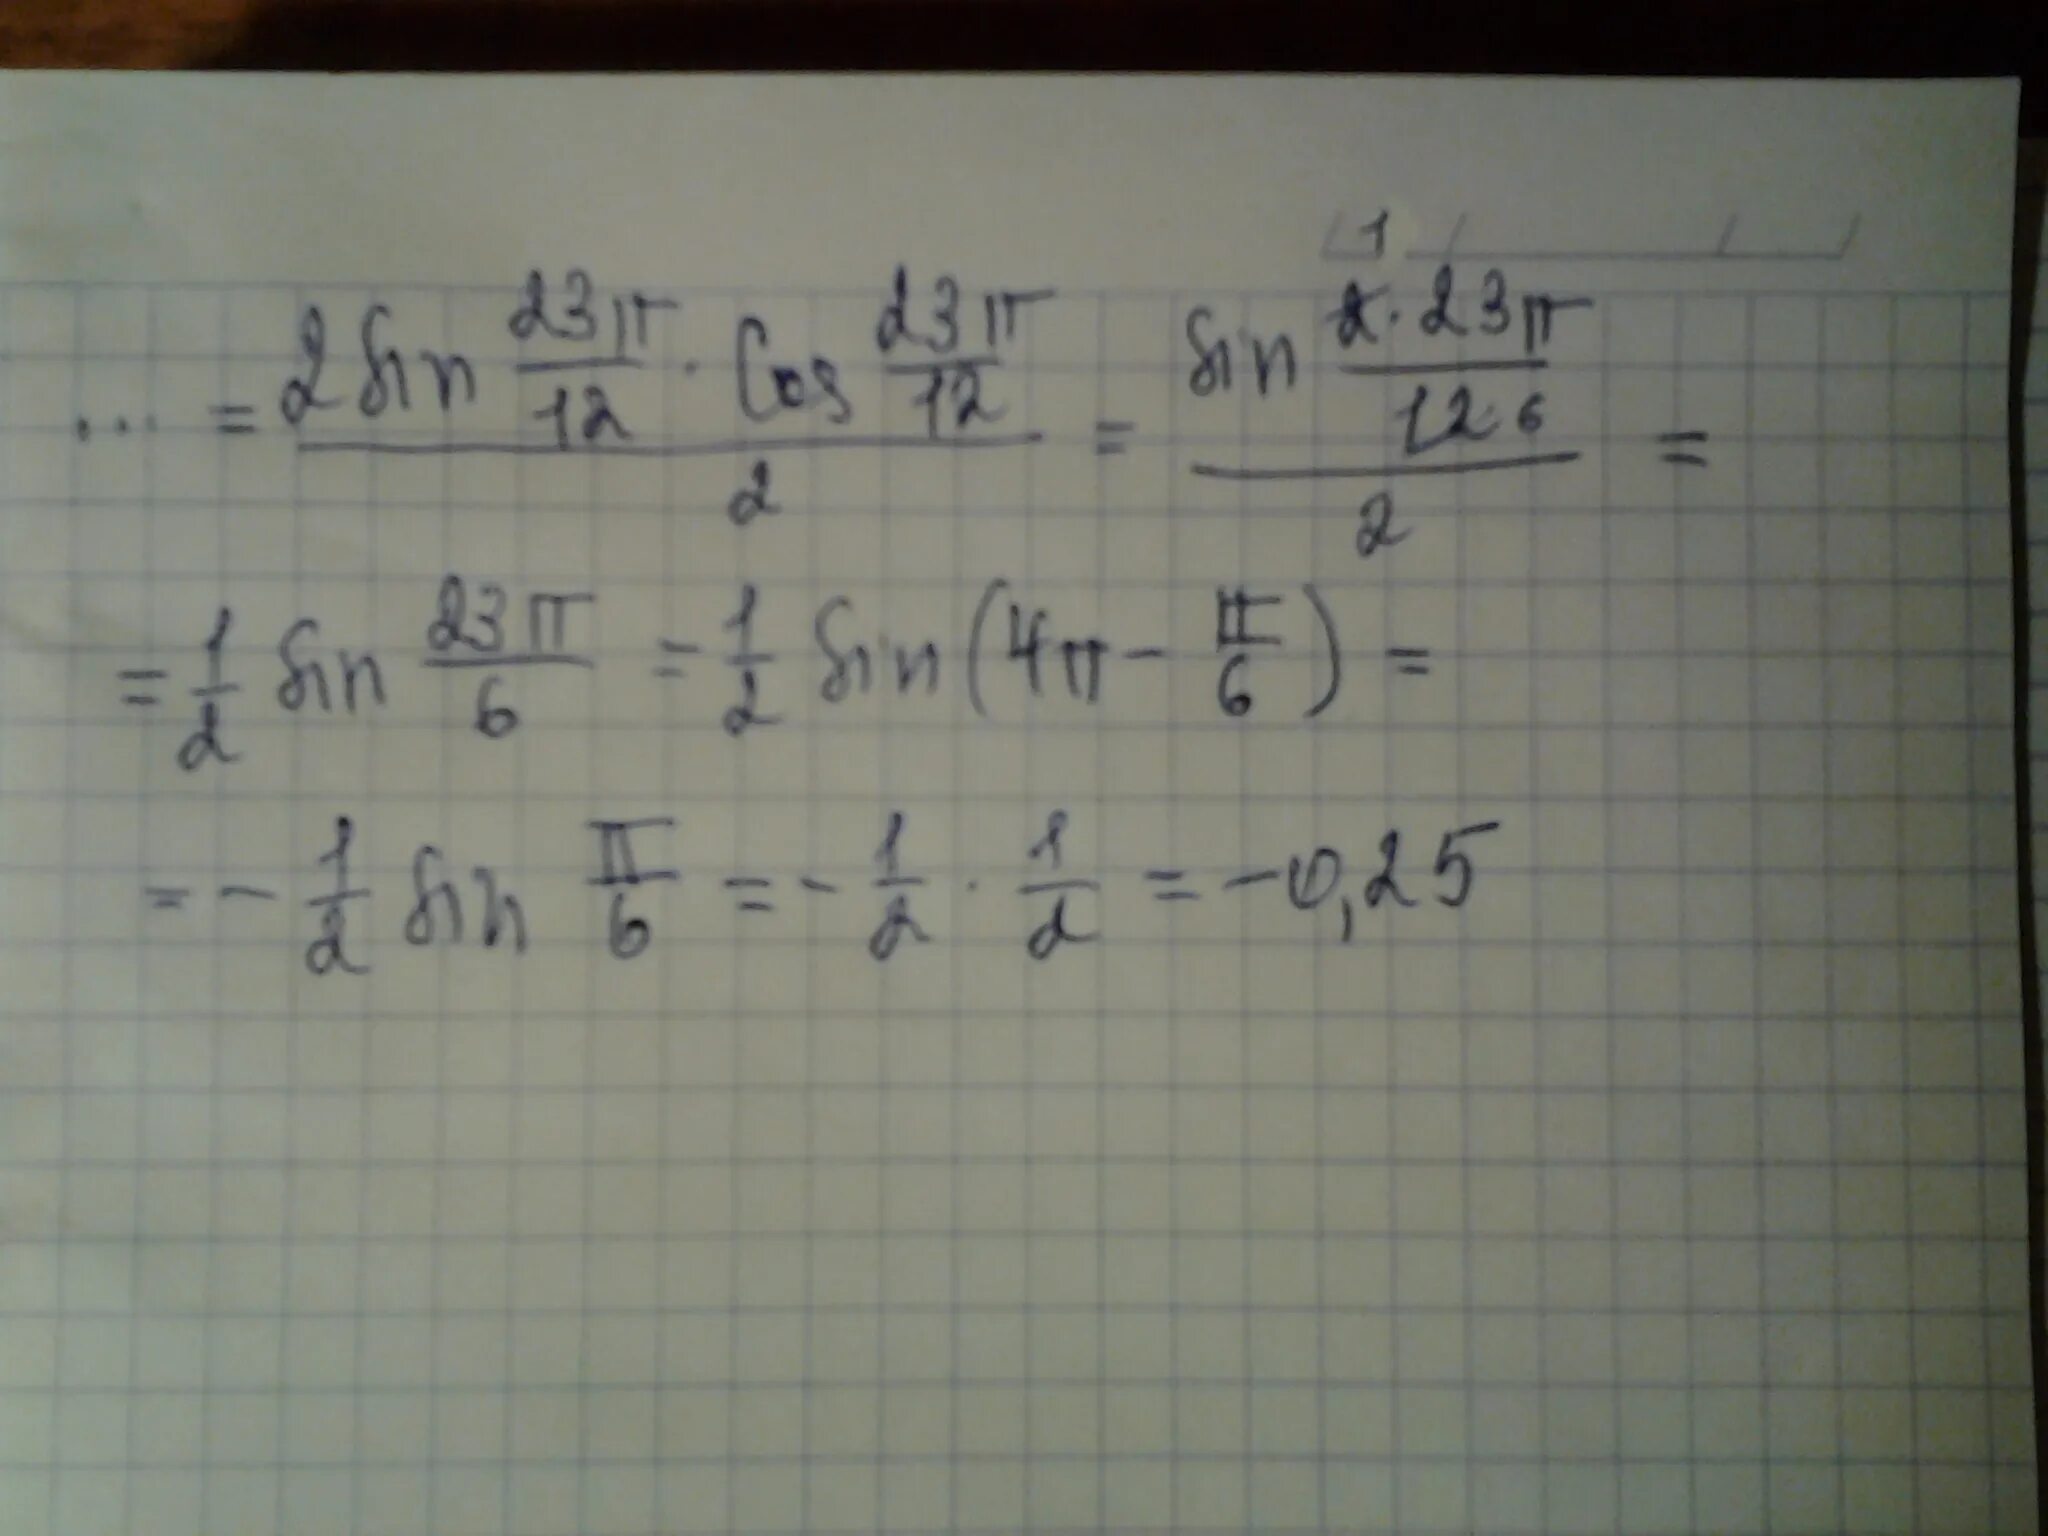 ... = (2 sin 23π/12 · Cos 23π/12)/2 = (sin 2·23π/12 6)/2 =
1
= 1/2 sin 23π/6 = 1/2 sin(4π - π/6) =
= - 1/2 sin π/6 = - 1/2 · 1/2 = -0,25